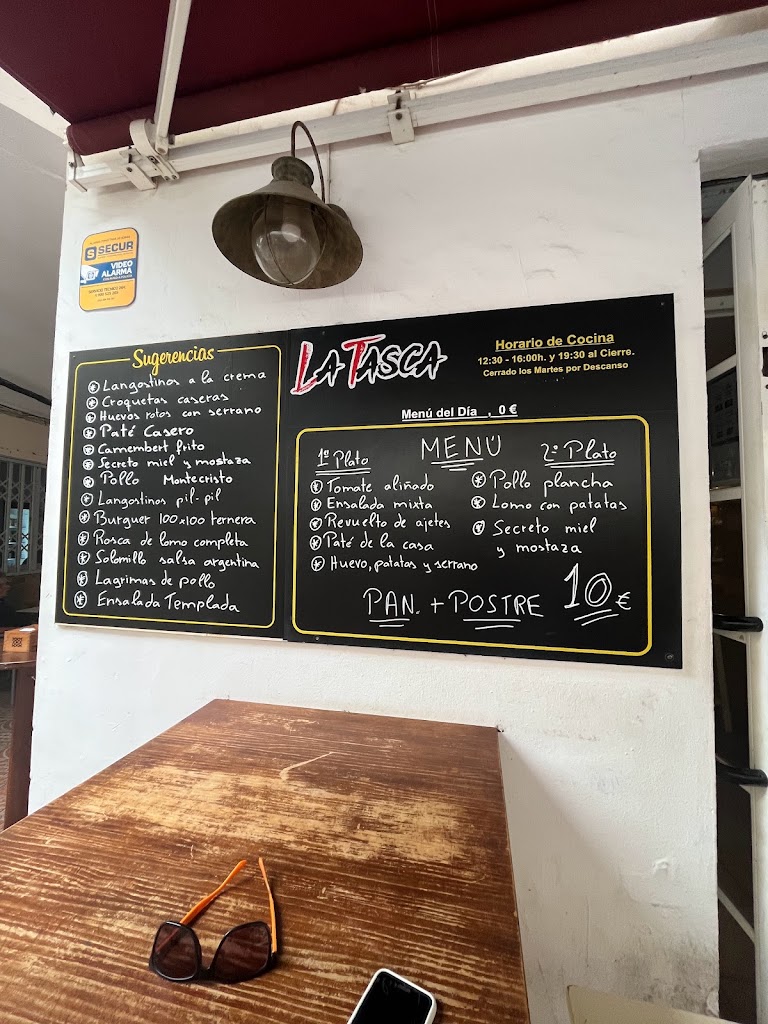 SECUR
VIDEO
ALARMA
Sugerencias
Langostinos a la crema
Croquetas caseras
Huevos rotos con serrano
Paté Casero
Camembert frito
Secreto miel y mostaza
Pollo Montecristo
Langostinos pil-pil
Burguer 100x100 ternera
Rosca de lomo completa
Solomillo salsa argentina
Lagrimas de pollo
Ensalada Templada
LA TASCA
Horario de Cocina
12:30 - 16:00h. y 19:30 al Cierre.
Cerrado los Martes por Descanso
Menú del Día , 0 €
MENÚ
1º Plato
Tomate aliñado
Ensalada mixta
Revuelto de ajetes
Paté de la casa
Huevo, patatas y serrano
2º Plato
Pollo plancha
Lomo con patatas
Secreto miel
y mostaza
PAN. + POSTRE 10€